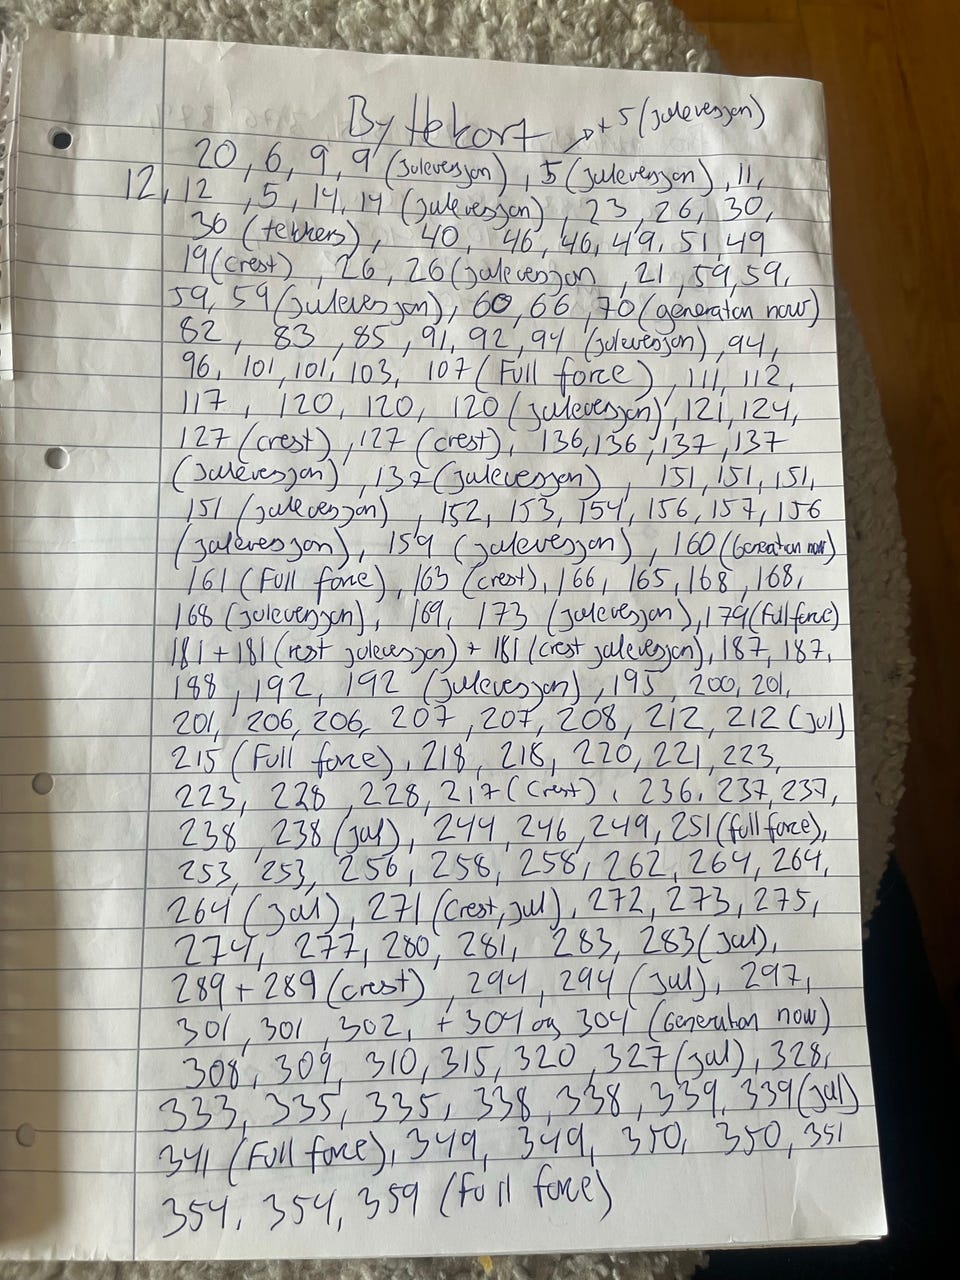 Byttekort → + 5 (juleversjon)
20, 6, 9, 9 (juleversjon), 5 (juleversjon), 11,
12, 12, 5, 14, 14 (juleversjon), 23, 26, 30,
30 (tekkers), 40, 46, 46, 49, 51, 49
19 (crest), 26, 26 (juleversjon, 21, 59, 59,
59, 59 (juleversjon), 60, 66, 70 (generation now)
82, 83, 85, 91, 92, 94 (juleversjon), 94,
96, 101, 101, 103, 107 (Full force), 111, 112,
117, 120, 120, 120 (juleversjon), 121, 124,
127 (crest), 127 (crest), 136, 136, 137, 137
(juleversjon), 137 (juleversjon), 151, 151, 151,
151 (juleversjon), 152, 153, 154, 156, 157, 156
(juleversjon), 159 (juleversjon), 160 (Generation now)
161 (Full force), 163 (crest), 166, 165, 168, 168,
168 (juleversjon), 169, 173 (juleversjon), 179 (full force)
181 + 181 (rest juleversjon) + 181 (crest juleversjon), 187, 187,
188, 192, 192 (juleversjon), 195, 200, 201,
201, 206, 206, 207, 207, 208, 212, 212 (jul)
215 (Full force), 218, 218, 220, 221, 223,
223, 228, 228, 217 (crest), 236, 237, 237,
238, 238 (jul), 244, 246, 249, 251 (full force),
253, 253, 256, 258, 258, 262, 264, 264,
264 (jul), 271 (crest, jul), 272, 273, 275,
274, 277, 280, 281, 283, 283 (jul),
289 + 289 (crest), 294, 294 (jul), 297,
301, 301, 302, + 304 og 304 (Generation now)
308, 309, 310, 315, 320, 327 (jul), 328,
333, 335, 335, 338, 338, 339, 339 (jul)
341 (Full force), 349, 349, 350, 350, 351
354, 354, 359 (full force)